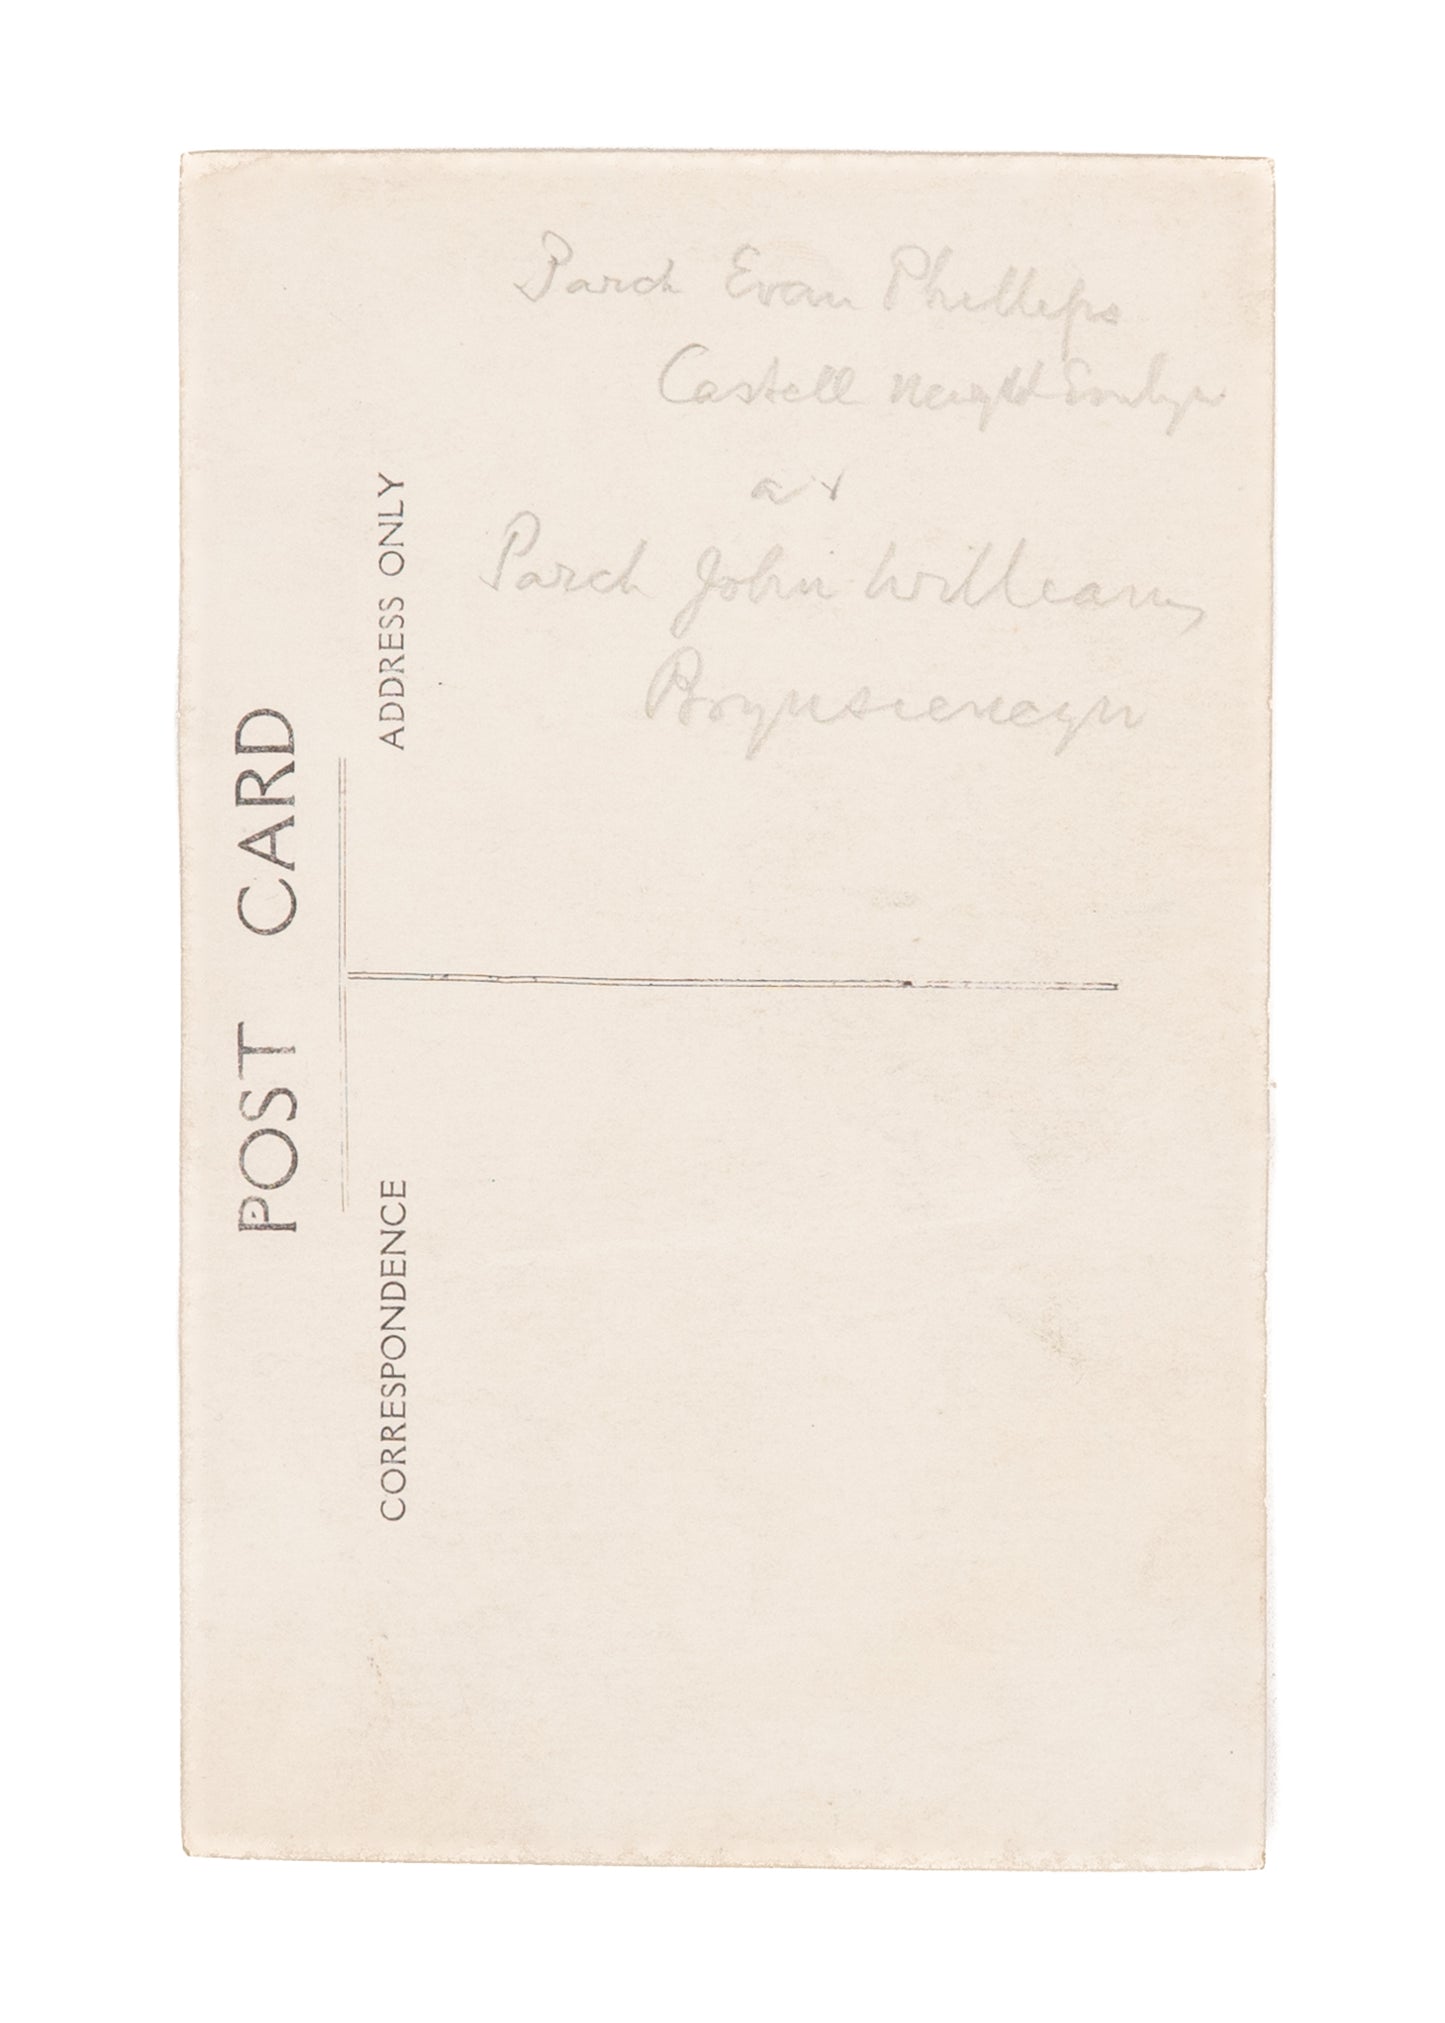 Parch Evan Phillips
Castell Newydd Emlyn
a'r
Parch John Williams
Brynsiencyn
POST CARD
ADDRESS ONLY
CORRESPONDENCE